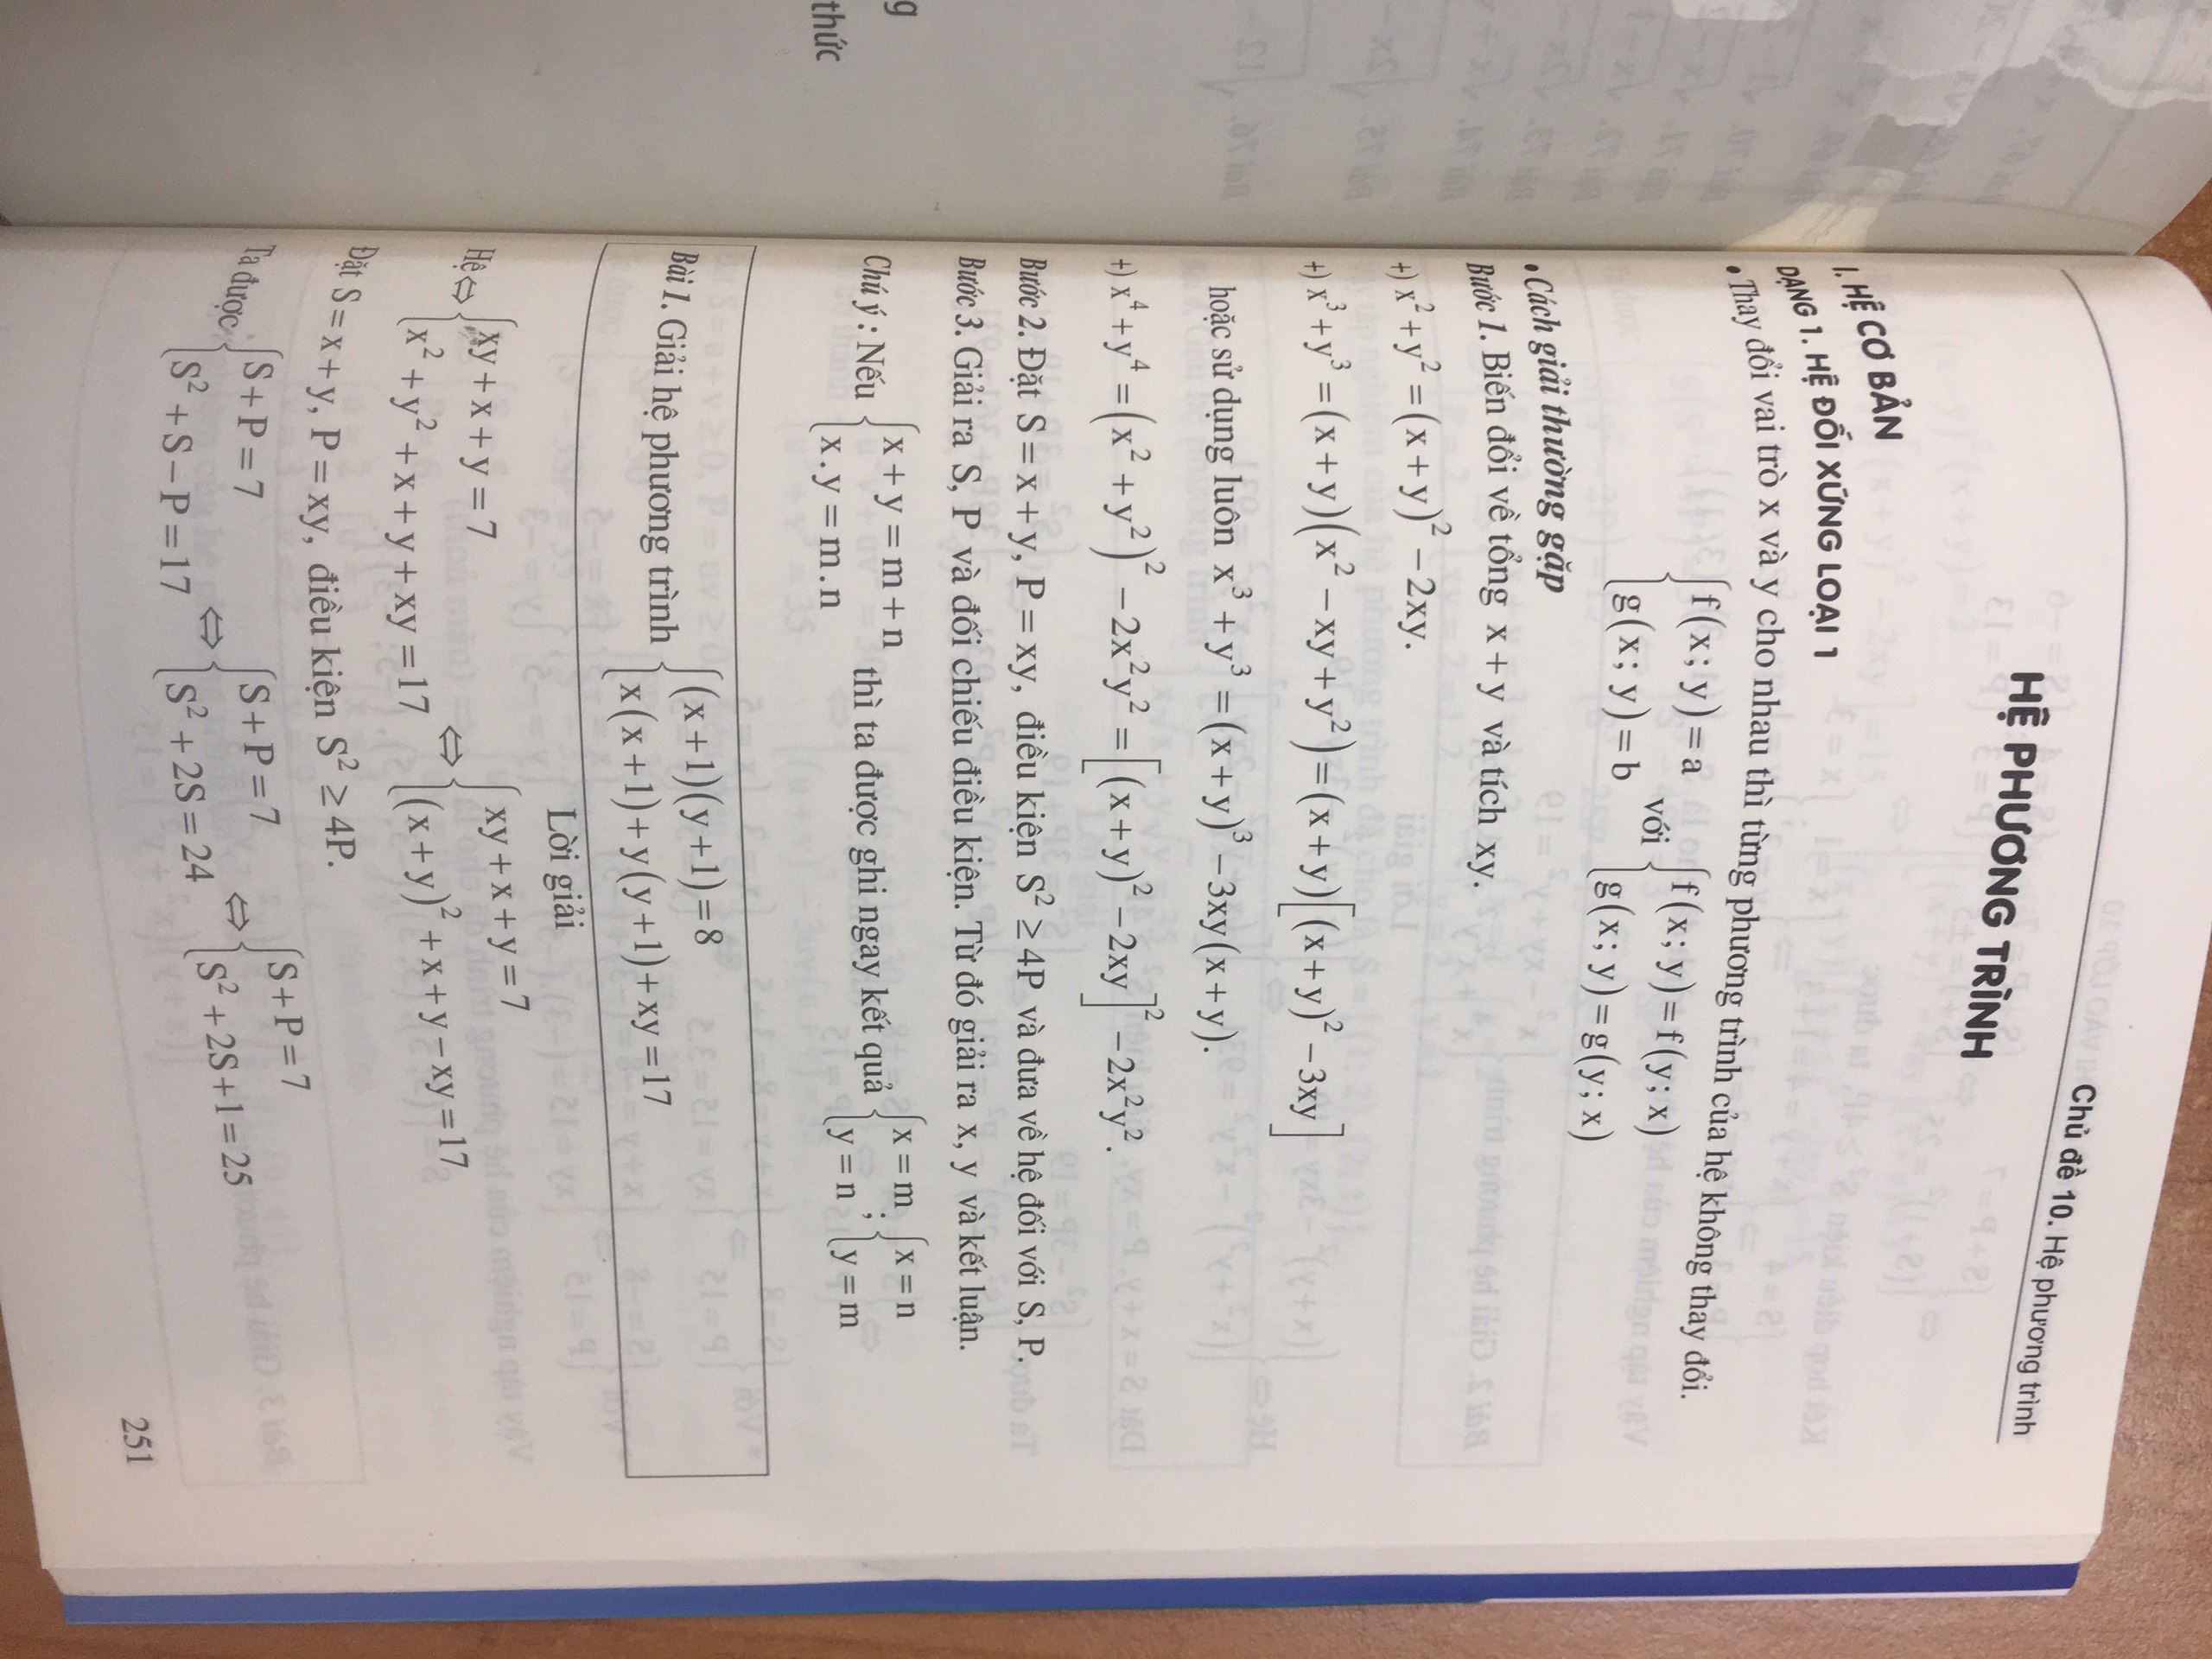 Chủ đề 10. Hệ phương trình
HỆ PHƯƠNG TRÌNH
I. HỆ CƠ BẢN
DẠNG 1. HỆ ĐỐI XỨNG LOẠI 1
• Thay đổi vai trò x và y cho nhau thì từng phương trình của hệ không thay đổi.
{ f(x; y) = a
{ g(x; y) = b với { f(x; y) = f(y; x)
{ g(x; y) = g(y; x)
• Cách giải thường gặp
Bước 1. Biến đổi về tổng x + y và tích xy.
+) x² + y² = (x + y)² − 2xy.
+) x³ + y³ = (x + y)(x² − xy + y²) = (x + y)[(x + y)² − 3xy]
hoặc sử dụng luôn x³ + y³ = (x + y)³ − 3xy(x + y).
+) x⁴ + y⁴ = (x² + y²)² − 2x²y² = [(x + y)² − 2xy]² − 2x²y².
Bước 2. Đặt S = x + y, P = xy, điều kiện S² ≥ 4P và đưa về hệ đối với S, P.
Bước 3. Giải ra S, P và đối chiếu điều kiện. Từ đó giải ra x, y và kết luận.
Chú ý : Nếu { x + y = m + n
{ x.y = m.n thì ta được ghi ngay kết quả { x = m
{ y = n ; { x = n
{ y = m
Bài 1. Giải hệ phương trình { (x + 1)(y + 1) = 8
{ x(x + 1) + y(y + 1) + xy = 17
Lời giải
Hệ ⇔ { xy + x + y = 7
{ x² + y² + x + y + xy = 17 ⇔ { xy + x + y = 7
{ (x + y)² + x + y − xy = 17
Đặt S = x + y, P = xy, điều kiện S² ≥ 4P.
Ta được { S + P = 7
{ S² + S − P = 17 ⇔ { S + P = 7
{ S² + 2S = 24 ⇔ { S + P = 7
{ S² + 2S + 1 = 25
251
g
thức